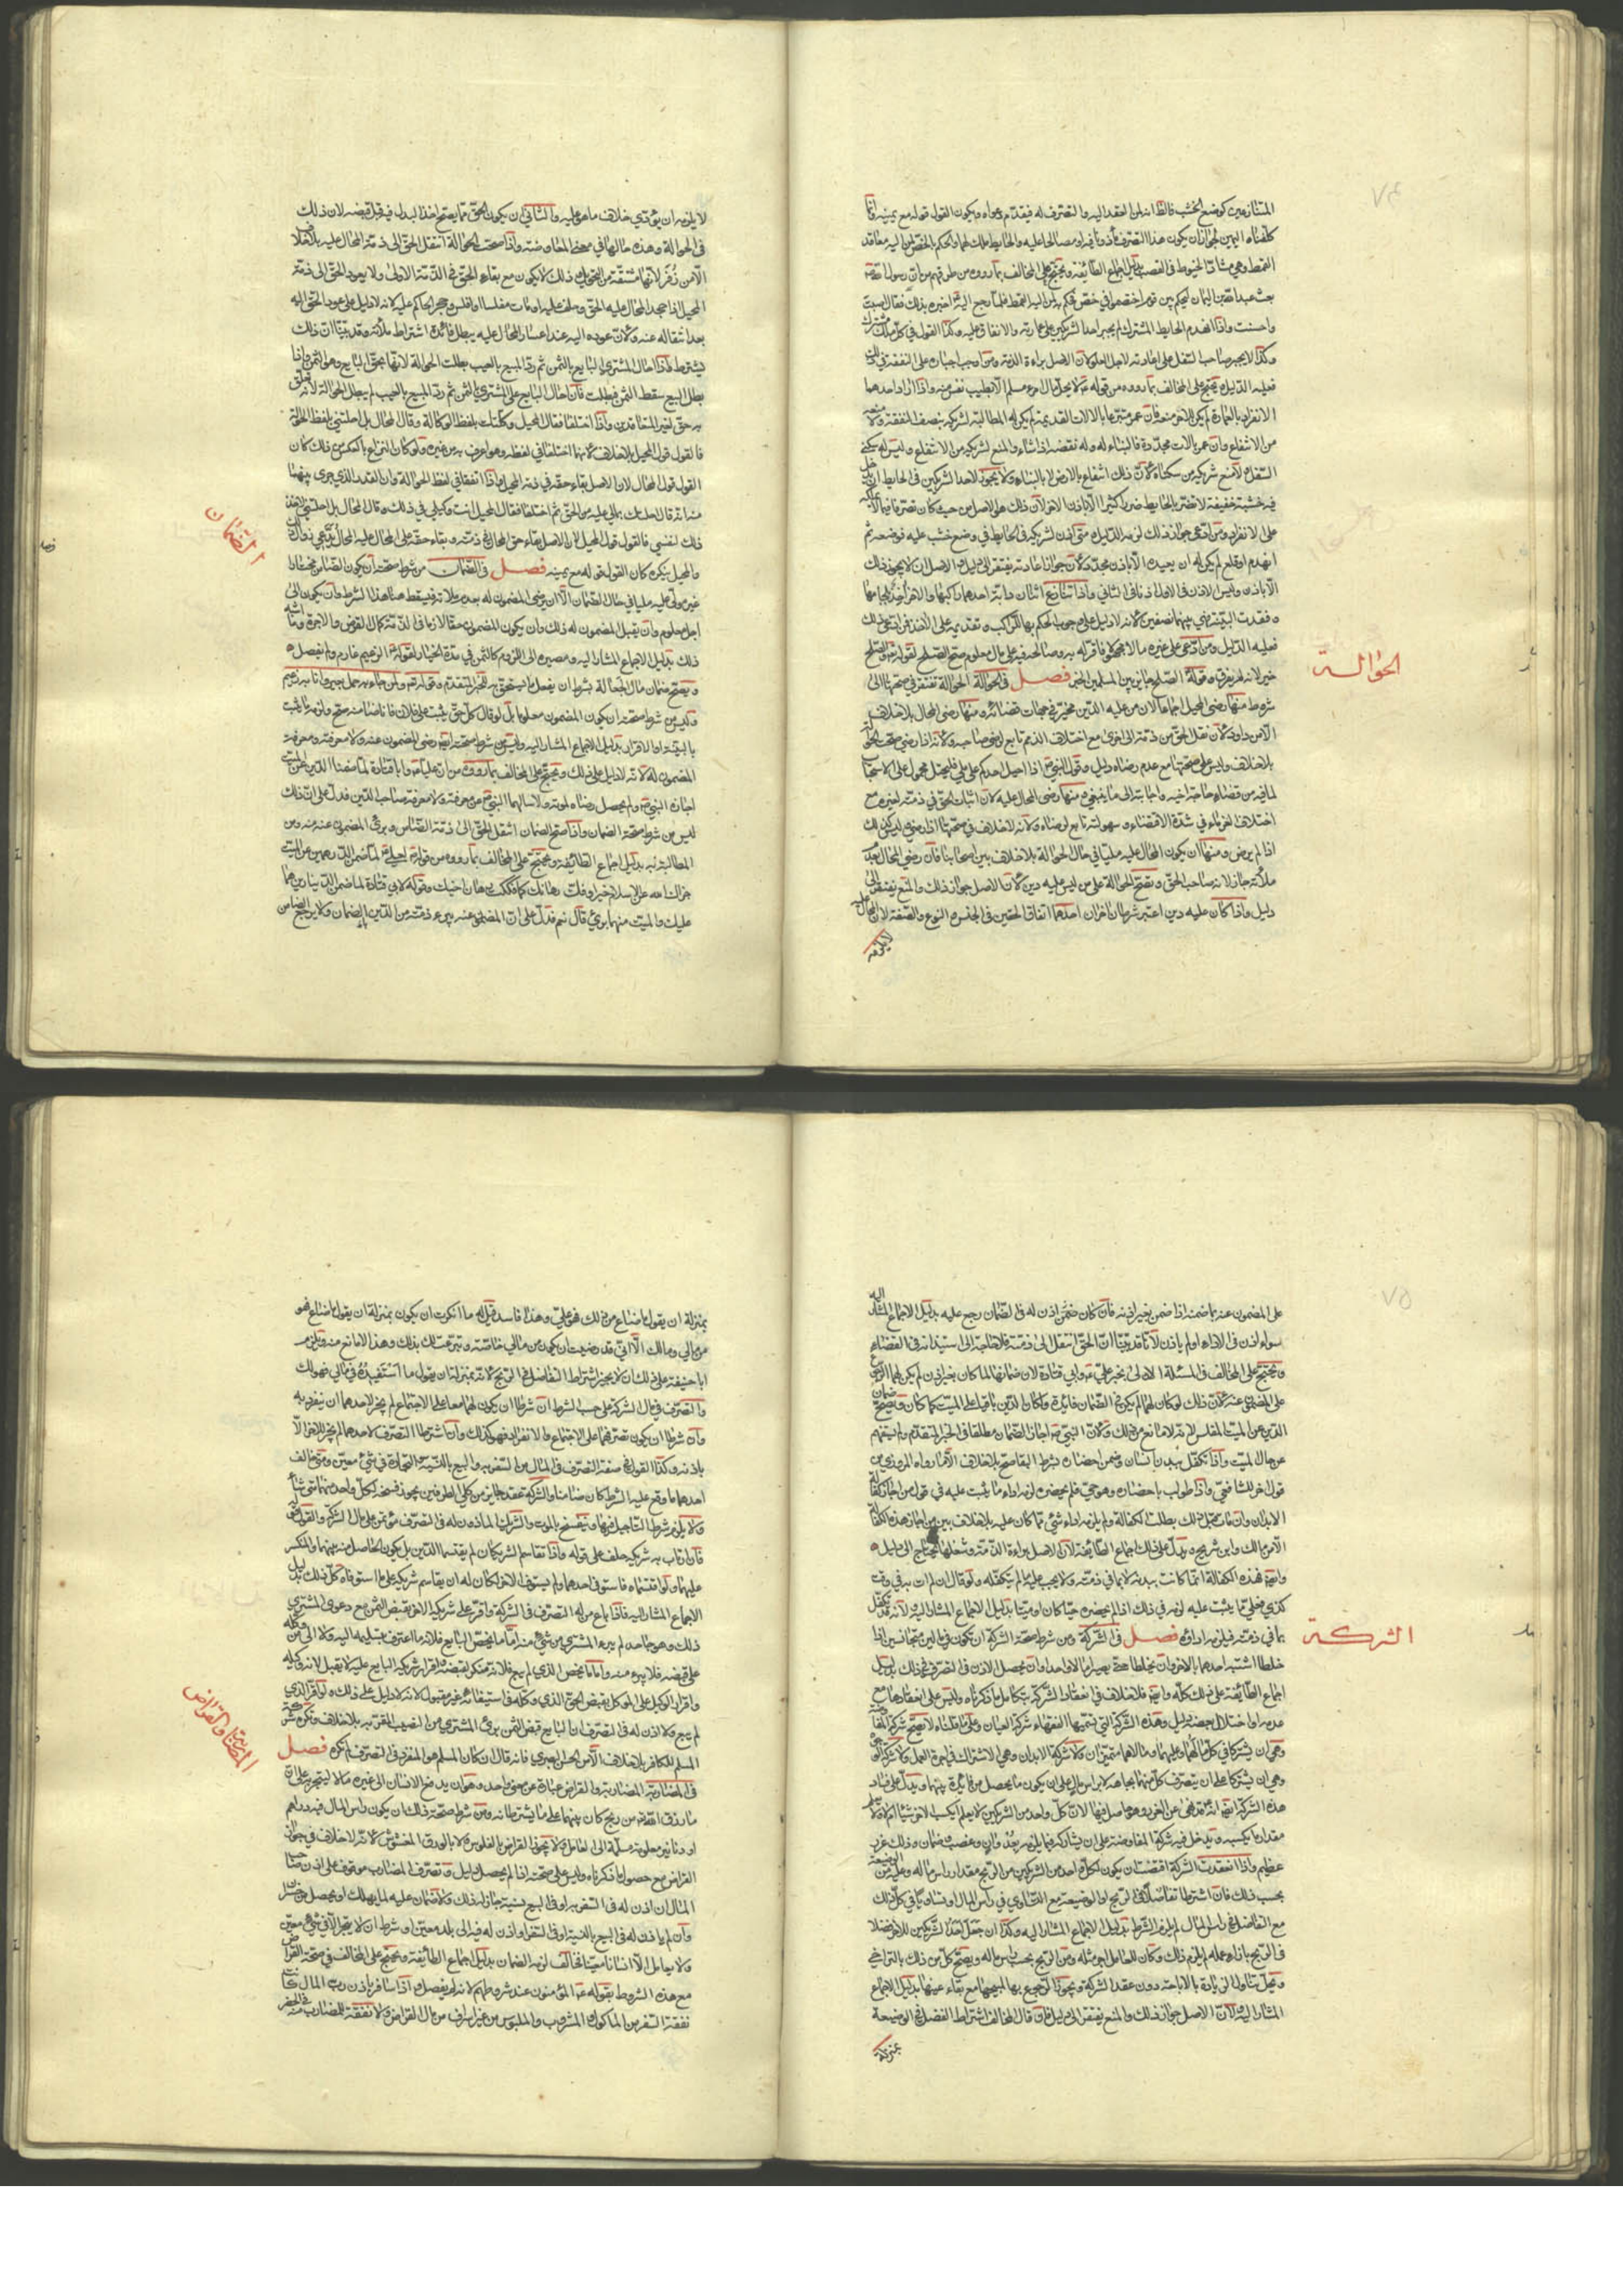 ٧٤
المتنازعين كوضع الخشب فالظاهر انه لمن العقد اليه والتصرف له فيقدم دعواه ويكون القول قوله مع يمينه وانما
كلفناه اليمين لجواز ان يكون هذا التصرف مأذونا فيه او مصالحا عليه والحايط ملك لهما والحكم بالخص لمن اليه معاقد
القمط وهي مشاد الخيوط في القصب بدليل اجماع الطائفة ويحتج على المخالف بما رووه من طرقهم من ان رسول الله
بعث عبد الله بن اليمان ليحكم بين قوم اختصموا في خص فحكم به لمن اليه القمط فلما رجع اليه اخبره بذلك فقال اصبت
واحسنت واذا انهدم الحايط المشترك لم يجبر احد الشريكين على عمارته والانفاق عليه وكذا القول في كل ملك مشترك
وكذا لا يجبر صاحب السفل على اعادته لاجل العلو لان الاصل براءة الذمة ومن اوجب اجباره على النفقة في ذلك
فعليه الدليل ويحتج على المخالف بما رووه من قوله لا يحل مال امرء مسلم الا بطيب نفس منه واذا اراد احدهما
الانفراد بالعمارة لم يكن للاخر منعه فان عمر متبرعا بالالات القديمة لم يكن له المطالبة لشريكه بنصف النفقة ولا منعه
من الانتفاع وان عمر بالات مجددة فالبناء له وله نقضه اذا شاء والمنع لشريكه من الانتفاع وليس له سكنى
السفل ولا منع شريكه من سكناه لان ذلك انتفاع بالارض لا بالبناء ولا يجوز لاحد الشريكين في الحايط ان يدخل
فيه خشبة خفيفة لا تضر بالحايط ضررا كثيرا الا باذن الاخر لان ذلك هو الاصل من حيث كان تصرفا فيما لا يملكه
على الانفراد ومن ادعى جواز ذلك لزمه الدليل ومتى اذن لشريكه في الحايط في وضع خشب عليه فوضعه ثم
انهدم او قلع لم يكن له ان يعيده الا باذن مجدد لان جواز اعادته يفتقر الى دليل والاصل ان لا يجوز ذلك
الا باذن وليس الاذن في الاول اذنا في الثاني واذا تنازع اثنان دابة احدهما راكبها والاخر آخذ بلجامها
وفقدت البينة فهي بينهما نصفين لانه لا دليل على وجوب الحكم بها للراكب وتقديمه على الاخذ فمن ادعى ذلك
فعليه الدليل ومن ادعى على غيره مالا مجهولا فاقر له به وصالحه فيه على مال معلوم صح الصلح لقوله تعالى والصلح
خير لانه لم يفرق وقوله الصلح جائز بين المسلمين الخبر فصل في الحوالة الحوالة تفتقر في صحتها الى
شروط منها رضى المحيل اجماعا لان من عليه الدين مخير في جهات قضائه ومنها رضى المحال بلا خلاف
الا من داود لان نقل الحق من ذمة الى اخرى مع اختلاف الذمم تابع لرضى صاحبه ولانه اذا رضى صحت الحوالة
بلا خلاف وليس على صحتها مع عدم رضاه دليل وقول النبي اذا احيل احدكم على ملي فليحتل محمول على الاستحباب
لما فيه من قضاء حاجة اخيه واجابته الى ما ينبغي ومنها رضى المحال عليه لان اثبات الحق في ذمته لغيره مع
اختلاف الغرماء في شدة الاقتضاء وسهولته تابع لرضاه ولانه لا خلاف في صحتها اذا رضى وليس كذلك
اذا لم يرض ومنها ان يكون المحال عليه مليا في حال الحوالة بلا خلاف بين اصحابنا فان رضي المحال بعدم
ملأته جاز لانه صاحب الحق وتصح الحوالة على من ليس عليه دين لان الاصل جواز ذلك والمنع يفتقر الى
دليل واذا كان عليه دين اعتبر شرطان اخران احدهما اتفاق الحقين في الجنس والنوع والصفة لان المحال عليه
لا يلزمه
الحوالة
لا يلزمه ان يؤدي خلاف ما هو عليه والثاني ان يكون الحق مما يصح اخذ البدل فيه قبل قبضه لان ذلك
في الحوالة وهذه حالها في معنى المعاوضة واذا صحت الحوالة انتقل الحق الى ذمة المحال عليه بلا خلاف
الا من زفر لانها مشتقة من التحويل وذلك لا يكون مع بقاء الحق في الذمة الاولى ولا يعود الحق الى ذمة
المحيل اذا جحد المحال عليه الحق وحلف عليه او مات مفلسا او افلس وحجر الحاكم عليه لانه لا دليل على عود الحق اليه
بعد انتقاله عنه ولان عوده اليه عند اعسار المحال عليه يبطل فائدة اشتراط ملأته وقد بينا ان ذلك
يشترط فاذا احال المشتري البايع بالثمن ثم رد المبيع بالعيب بطلت الحوالة لانها بحق البايع وهو الثمن واذا
بطل البيع سقط الثمن فبطلت فان احال البايع على المشتري بالثمن ثم رد المبيع بالعيب لم يبطل الحوالة لانه تعلق
به حق لغير المتعاقدين واذا اختلفا فقال المحيل وكلتك بلفظ الوكالة وقال المحال بل احلتني بلفظ الحوالة
فالقول قول المحيل بلا خلاف لانهما اختلفا في لفظه وهو اعرف به من غيره ولو كان النزاع بالعكس من ذلك كان
القول قول المحال لان الاصل بقاء حقه في ذمة المحيل واذا اتفقا في لفظ الحوالة وان القدر الذي جرى بينهما
منه انه قال احلتك بمالي عليه من الحق ثم اختلفا فقال المحيل انت وكيلي في ذلك وقال المحال بل احلتني لاخذ
ذلك لنفسي فالقول قول المحيل لان الاصل بقاء حق المحال في ذمته وبقاء حقه على المحال عليه والمحال يدعي زوال ذلك
والمحيل ينكره كان القول قوله مع يمينه فصل في الضمان من شرط صحته ان يكون الضامن مختارا
غير مولى عليه مليا في حال الضمان الا ان يرضى المضمون له بعدم ملاته فيسقط هنا هذا الشرط وان يكون الى
اجل معلوم وان يقبل المضمون له ذلك وان يكون المضمون حقا لازما في الذمة كمال القرض والاجرة وما اشبه
ذلك بدليل الاجماع المشار اليه ومصيره الى اللزوم كالثمن في مدة الخيار لقوله الزعيم غارم ولم يفصل
ويصح ضمان مال الجعالة بشرط ان يفعل ما يستحق به للخبر المتقدم وقوله تعالى ولمن جاء به حمل بعير وانا به زعيم
وليس من شرط صحته ان يكون المضمون معلوما بل لو قال كل حق يثبت على فلان فانا ضامنه صح ولزمه ما يثبت
بالبينة او الاقرار بدليل الاجماع المشار اليه وليس من شرط صحته ايضا رضى المضمون عنه ولا معرفته ومعرفة
المضمون له لانه لا دليل على ذلك ويحتج على المخالف بما رووه من ان عليا وابا قتادة لما ضمنا الدين عن الميت
اجازه النبي ولم يحصل رضاه لموته ولا سالهما النبي عن معرفته ولا معرفة صاحب الدين فدل على ان ذلك
ليس من شرط صحة الضمان واذا صح الضمان انتقل الحق الى ذمة الضامن وبرئ المضمون عنه منه ومن
المطالبة به بدليل اجماع الطائفة ويحتج على المخالف بما رووه من قوله لعلي لما ضمن الدرهمين عن الميت
جزاك الله عن الاسلام خيرا وفك رهانك كما فككت رهان اخيك وقوله لابي قتادة لما ضمن الدينارين هما
عليك والميت منهما برئ قال نعم فدل على ان المضمون عنه يبرء ذمته من الدين بالضمان ولا يرجع الضامن
الضمان
٧٥
على المضمون عنه بما ضمنه اذا ضمن بغير اذنه فان كان ضمن باذن له في الضمان رجع عليه بدليل الاجماع المشار اليه
سواء اذن في الاداء او لم ياذن لانا قد بينا ان الحق انتقل الى ذمته فلا حاجة الى استيذانه في القضاء
ويحتج على المخالف في المسئلة الاولى بخبر علي وابي قتادة لان ضمانهما لما كان بغير اذن لم يكن لهما الرجوع
على المضمون عنه لان ذلك لو كان لهما لم يكن في الضمان فائدة ولكان الدين باقيا على الميت كما كان ويصح ضمان
الدين عن الميت المفلس لانه لا مانع من ذلك ولان النبي اجاز الضمان مطلقا في الخبر المتقدم ولم يستفهم
عن حال الميت واذا تكفل ببدن انسان وضمن احضاره بشرط البقاء صح بلا خلاف الا ما رواه المروزي من
قول اخر للشافعي واذا طولب باحضاره وهو حي فلم يحضره لزمه اداء ما يثبت عليه في قول من اجاز كفالة
الابدان وان مات قبل ذلك بطلت الكفالة ولم يلزمه اداء شيء مما كان عليه بلا خلاف بين من اجاز هذه الكفالة
الا من مالك وابن شريح ويدل على ذلك اجماع الطائفة لان الاصل براءة الذمة وشغلها يحتاج الى دليل
وايضا فهذه الكفالة انما كانت ببدنه لا بما في ذمته ولا يجب عليه ما لم يتكفله ولو قال ان لم ات به في وقت
كذي فعلي ما يثبت عليه لزمه في ذلك اذا لم يحضره حيا كان او ميتا بدليل الاجماع المشار اليه ولانه قد تكفل
بما في ذمته فيلزمه اداؤه فصل في الشركة ومن شرط صحة الشركة ان تكون في مالين متجانسين اذا
خلطا اشتبه احدهما بالاخر وان يخلطا حتى يصيرا مالا واحدا وان يحصل الاذن في التصرف في ذلك بدليل
اجماع الطائفة على ذلك كله وايضا فلا خلاف في انعقاد الشركة بتكامل ما ذكرناه وليس على انعقادها مع
عدمه او اختلال بعضه دليل وهذه الشركة التي تسميها الفقهاء شركة العنان وعلى ما قلناه لا تصح شركة المفاوضة
وهي ان يشتركا في كل ما لهما وعليهما ومالاهما متميزان ولا شركة الابدان وهي الاشتراك في اجرة العمل ولا شركة الوجوه
وهي ان يشتركا على ان يتصرف كل منهما بجاهه لا براس مال على ان يكون ما يحصل من فائدة بينهما ويدل على فساد
هذه الشركة ايضا انه نهى عن الغرر وهو حاصل فيها لان كل واحد من الشريكين لا يعلم ايكسب الاخر شيئا ام لا ولا يعلم
مقدار ما يكسبه ويدخل في شركة المفاوضة على ان يشاركه فيما يلزمه بعدوان وغصب وضمان وذلك غرر
عظيم واذا انعقدت الشركة اقتضت ان يكون لكل واحد من الشريكين من الربح بمقدار راس ماله وعليه من الوضيعة
بحسب ذلك فان اشترطا تفاضلا في الربح او الوضيعة مع التساوي في راس المال او تساويا في كل ذلك
مع التفاضل في راس المال لم يلزم الشرط بدليل الاجماع المشار اليه وكذا ان جعل احد الشريكين للاخر فضلا
في الربح بازاء عمله لم يلزم ذلك وكان للعامل اجر مثله ومن الربح بحسب راس ماله ويصح كل من ذلك بالتراضي
ويحل تناول الزيادة بالاباحة دون عقد الشركة ويجوز الرجوع بها لمبيحها مع بقاء عينها بدليل الاجماع
المشار اليه لان الاصل جواز ذلك والمنع يفتقر الى دليل فان قال المخالف اشتراط الفضل في الوضيعة
بمنزلة
الشركة
بمنزلة ان يقول ما ضاع من ذلك فهو علي وهذا فاسد قيل له ما انكرت ان يكون بمنزلة ان يقول ما ضاع فهو
من مالي ومالك الا اني قد رضيت ان يكون من مالي خاصة وتبرعت لك بذلك وهذا لا مانع منه ويلزم
ابا حنيفة على ذلك ان لا يجيز اشتراط التفاضل في الربح لانه بمنزلة ان يقول ما استفيده في مالي فهو لك
والتصرف في مال الشركة على حسب الشرط ان شرطا ان يكون لهما معا على الاجتماع لم يجز لاحدهما ان ينفرد به
وان شرطا ان يكون تصرفهما على الاجتماع والانفراد فهو كذلك وان اشترطا التصرف لاحدهما لم يجز للاخر الا
باذنه وكذا القول في صفة التصرف في المال من السفر به والبيع بالنسية والتجارة في شيء معين ومتى خالف
احدهما ما وقع عليه الشرط كان ضامنا والشركة عقد جائز من كلي الطرفين يجوز فسخه لكل واحد منهما متى شاء
ولا يلزم شرط التاجيل فيها وينفسخ بالموت والشريك الماذون له في التصرف مؤتمن على مال الشركة والقول قوله
فان ارتاب به شريكه حلف على قوله واذا تقاسم الشريكان لم يقتسما الدين بل يكون الحاصل منه بينهما والمنكسر
عليهما ولو اقتسماه فاستوفى احدهما ولم يستوف الاخر لكان له ان يقاسم شريكه على ما استوفاه كل ذلك بدليل
الاجماع المشار اليه فاذا باع من له التصرف في الشركة واقر على شريكه الاخر بقبض الثمن مع دعوى المشتري
ذلك وهو جاحد لم يبرء المشتري من شيء منه اما ما يخص البايع فلانه ما اعترف بتسليمه اليه ولا الى من وكله
على قبضه فلا يبرء منه واما ما يخص الذي لم يبع فلانه منكر لقبضه واقرار شريكه البايع عليه لا يقبل لانه وكيله
واقرار الوكيل على الموكل بقبض الحق الذي وكله في استيفائه غير مقبول لانه لا دليل على ذلك ولو اقر الذي
لم يبع ولا اذن له في التصرف ان البايع قبض الثمن برئ المشتري من النصيب المقر به بلا خلاف وتكره شركة
المسلم للكافر بلا خلاف الا من الحسن البصري فانه قال ان كان المسلم هو المنفرد في التصرف لم تكره فصل
في المضاربة المضاربة والقراض عبارة عن معنى واحد وهو ان يدفع الانسان الى غيره مالا ليتجر به على ان
ما رزق الله من ربح كان بينهما على ما يشترطانه ومن شرط صحة ذلك ان يكون راس المال فيه دراهم
او دنانير معلومة مسلمة الى العامل ولا يجوز القراض بالفلوس ولا بالورق المغشوش لانه لا خلاف في جواز
القراض مع حصول ما ذكرناه وليس على صحته اذا لم يحصل دليل وتصرف المضارب موقوف على اذن صاحب
المال ان اذن له في السفر به او في البيع بنسية جاز له ذلك ولا ضمان عليه لما يهلك او يحصل من خسران
وان لم ياذن له في البيع بالنسية او في السفر او اذن له فيه الى بلد معين او شرط ان لا يتجر الا في شيء معين
ولا يعامل الا انسانا معينا فخالف لزمه الضمان بدليل اجماع الطائفة ويحتج على المخالف في صحة القراض
مع هذه الشروط بقوله المؤمنون عند شروطهم لانه لم يفصل واذا سافر باذن رب المال كانت
نفقة السفر من الماكول والمشروب والملبوس من غير اسراف من مال القراض ولا نفقة للمضارب منه في الحضر
المضاربة والقراض